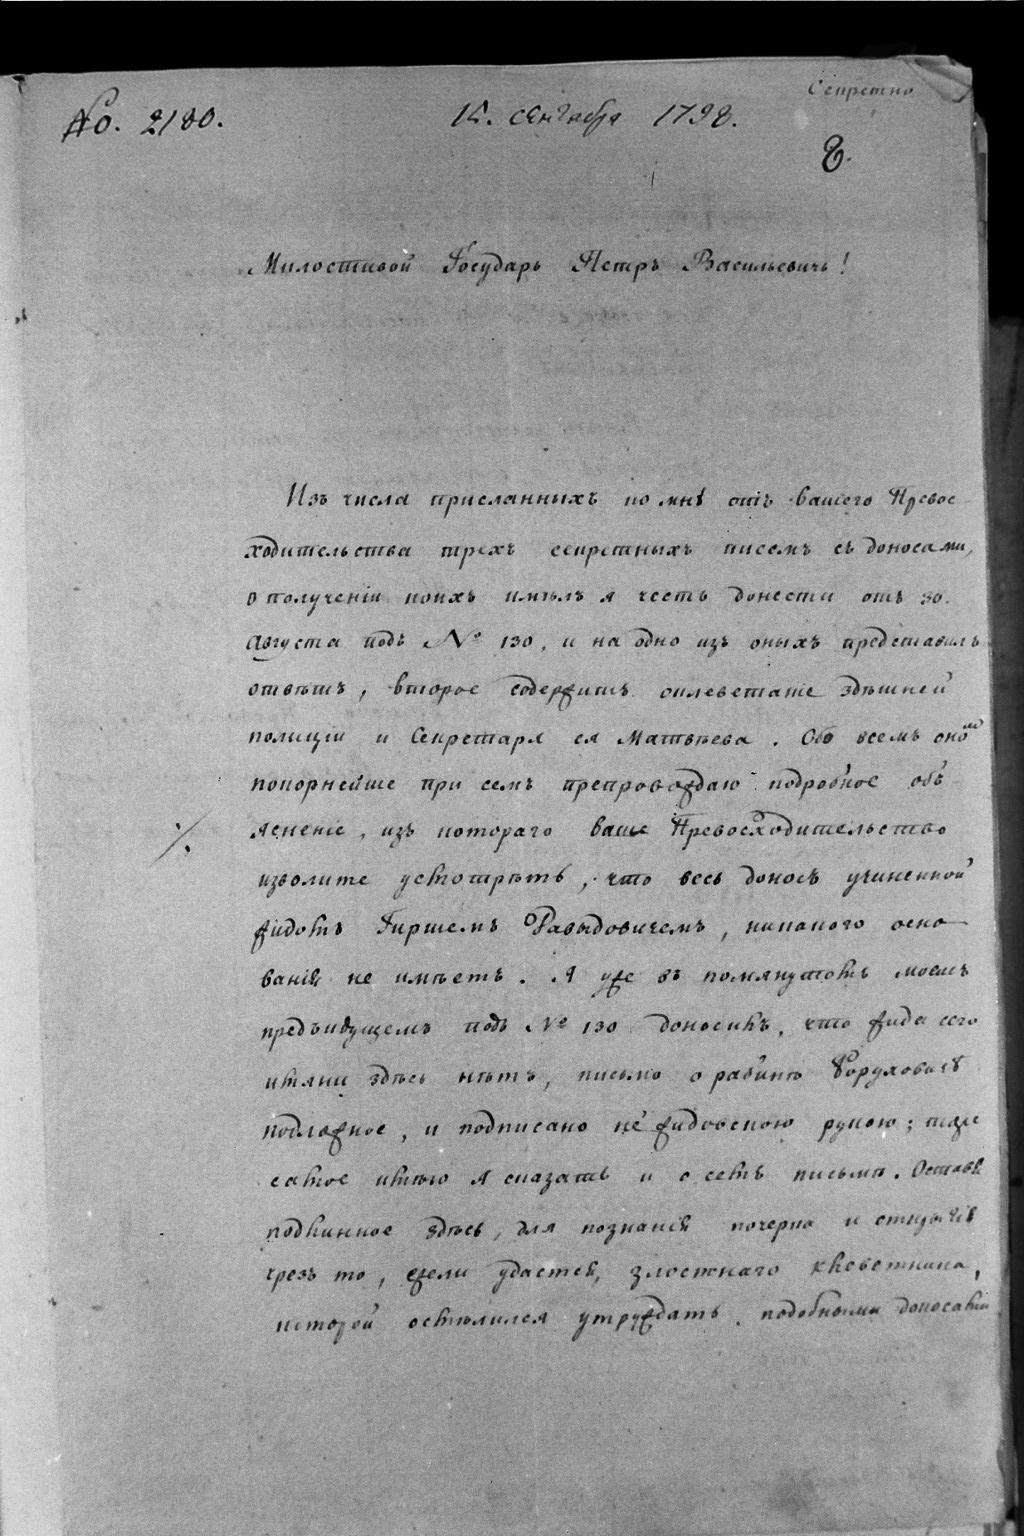 Секретно
No. 2180. 15. сентября 1798.
8.
Милостивой Государь Петръ Васильевичь!
Изъ числа присланныхъ ко мнѣ отъ вашего Превос-
ходительства трехъ секретныхъ писемъ съ доносами,
о полученіи коихъ имѣлъ я честь донести отъ 30.
Августа подъ № 130, и на одно изъ оныхъ представилъ
отвѣтъ, второе содержитъ оклеветаніе здѣшней
полиціи и Секретаря ея Матвѣева. Обо всемъ ономъ
покорнейше при семъ препровождаю подробное объ-
ясненіе, изъ котораго ваше Превосходительство
изволите усмотрѣть, что весь доносъ учиненной
жидомъ Гиршемъ Давыдовичемъ, никакого осно-
ванія не имѣетъ. Я уже въ помянутомъ моемъ
предъидущемъ подъ № 130 доносилъ, что жида сего
имяни здѣсь нѣтъ, письмо о рабинѣ Боруховичѣ
подложное, и подписано не жидовскою рукою; тоже
самое имѣю я сказать и о семъ письмѣ. Оставя
подлинное здѣсь, для познанія почерка и открытія
чрезъ то, ежели удастся, злостнаго клеветника,
которой осмѣлился утруждать подобными доносами